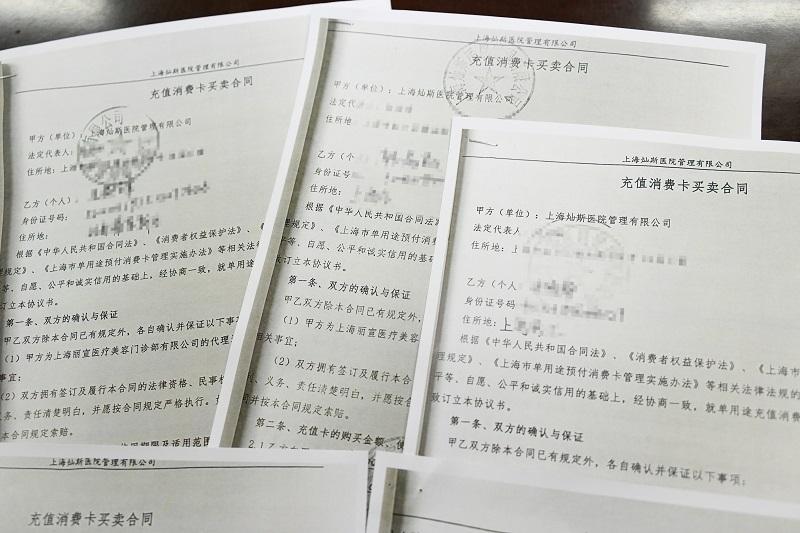 上海灿斯医院管理有限公司
充值消费卡买卖合同
甲方（单位）：上海灿斯医院管理有限公司
法定代表人
住所地：上
乙方（个人）：
身份证号码：
住所地：
根据《中华人民共和国合同法》、《消费者权益保护法》、《
理规定》、《上海市单用途预付消费卡管理实施办法》等相关法律
平等、自愿、公平和诚实信用的基础上，经协商一致，就单用途
订立本协议书。
第一条、双方的确认与保证
甲乙双方除本合同已有规定外，各自确认并保证以下事项
（1）甲方为上海丽宣医疗美容门诊部有限公司的代理
事宜；
（2）双方拥有签订及履行本合同的法律资格、民事
义务、责任清楚明白，并愿按合同规定严格执行。
本合同规定索赔。
期限及适用范围
上海灿斯医院管理有限公司
充值消费卡买卖合同
甲方（单位）：上海灿斯医院管理有限公司
法定代
住所地
乙方（个
身份证号
住所地：
根据《中华人民共和国合同法》
规定》、《上海市单用途预付消费
平等、自愿、公平和诚实信用的
订立本协议书。
第一条、双方的确认与保证
甲乙双方除本合同已有规定
（1）甲方为上海丽宣医疗
相关事宜；
（2）双方拥有签订及履行本
、义务、责任清楚明白，并愿按
并按本合同规定索赔。
第二条、充值卡的购买金额、使
2.1乙方
上海灿斯医院管理有限公司
充值消费卡买卖合同
甲方（单位）：上海灿斯医院管理有限公司
法定代表
住所地：上
乙方（个人
身份证号码
住所地：上
根据《中华人民共和国合同法》、《消费者权益保护法》、《上海市
理规定》、《上海市单用途预付消费卡管理实施办法》等相关法律法规的
平等、自愿、公平和诚实信用的基础上，经协商一致，就单用途充值消费
订立本协议书。
第一条、双方的确认与保证
甲乙双方除本合同已有规定外，各自确认并保证以下事项：
上海灿斯医院管理有限公司
充值消费卡买卖合同